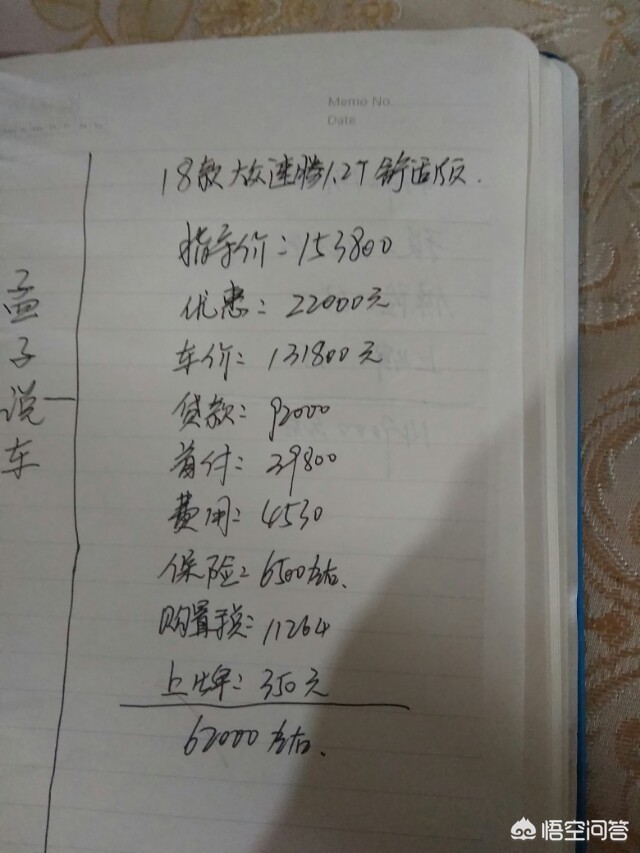 Memo No.
Date
18款大众速腾1.2T舒适版.
指导价:153800
优惠:22000元
车价:131800元
贷款:92000
首付:39800
费用:4530
保险:6500左右.
购置税:11264
上牌:350元
62000左右.
孟子说车
悟空问答